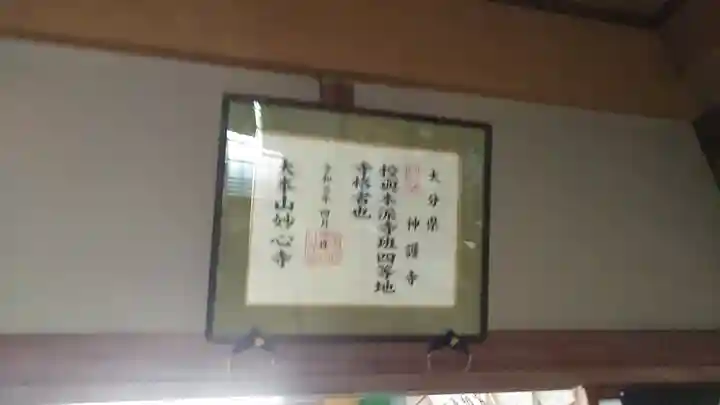 大分県
神護寺
授与本派寺班四等地
寺格者也
令和元年四月
大本山妙心寺